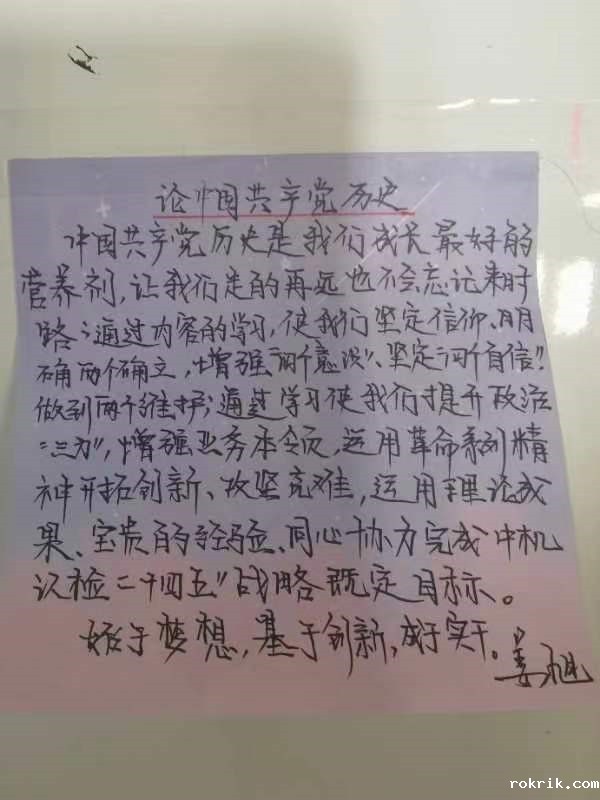 论中国共产党历史
中国共产党历史是我们成长最好的
营养剂,让我们走的再远也不会忘记来时
路;通过内容的学习,使我们坚定信仰、明
确两个确立,增强“四个意识”、坚定“四个自信”!
做到两个维护;通过学习使我们提升政治
“三力”,增强业务本领,运用革命系列精
神开拓创新、攻坚克难,运用理论成
果、宝贵的经验、同心协力完成中机
认检二十四五”战略既定目标。
始于梦想,基于创新,成于实干。
rokrik.com